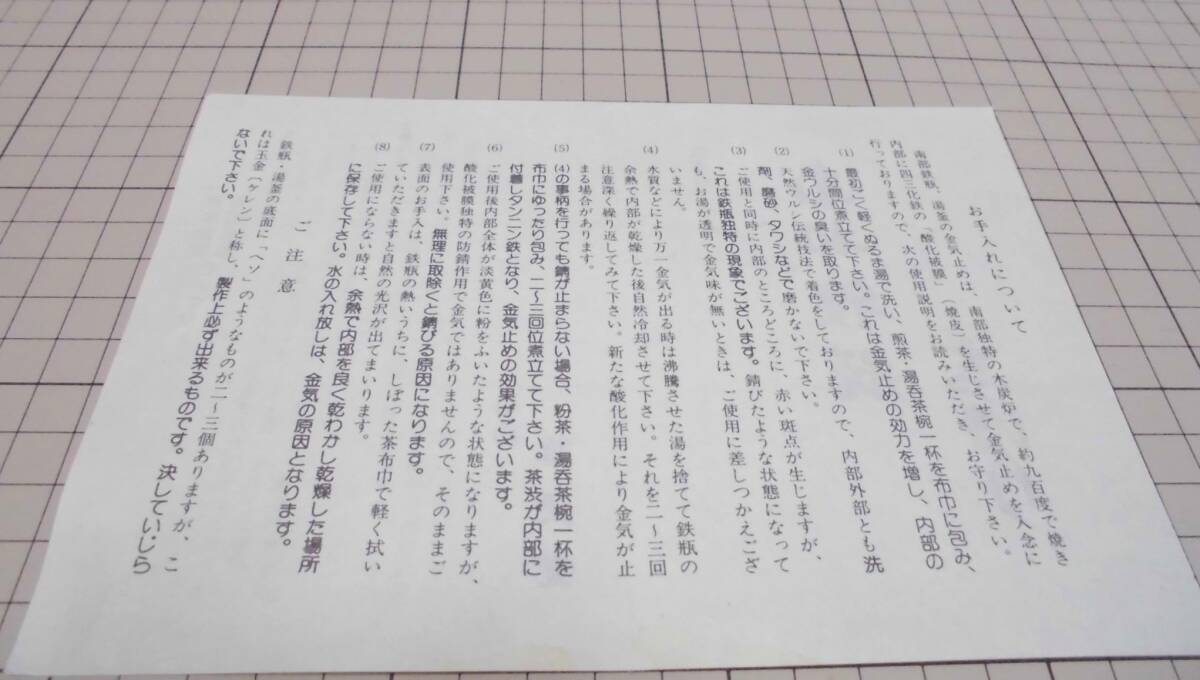 お手入れについて
南部鉄瓶、湯釜の金気止めは、南部独特の木炭炉で、約九百度で焼き
内部に四三化鉄の「酸化被膜」(焼皮)を生じさせて金気止めを入念に
行っておりますので、次の使用説明をお読みいただき、お守り下さい。
(1) 最初ごく軽くぬるま湯で洗い、煎茶・湯呑茶碗一杯を布巾に包み、
十分間位煮立てて下さい。これは金気止めの効力を増し、内部の
金ウルシの臭いを取ります。
(2) 天然ウルシ伝統技法で着色をしておりますので、内部外部とも洗
剤、磨砂、タワシなどで磨かないで下さい。
(3) ご使用と同時に内部のところどころに、赤い斑点が生じますが、
これは鉄瓶独特の現象でございます。錆びたような状態になって
も、お湯が透明で金気味が無いときは、ご使用に差しつかえござ
いません。
(4) 水質などにより万一金気が出る時は沸騰させた湯を捨てて鉄瓶の
余熱で内部が乾燥した後自然冷却させて下さい。それを二〜三回
注意深く繰り返してみて下さい。新たな酸化作用により金気が止
まる場合があります。
(5) (4)の事柄を行っても錆が止まらない場合、粉茶・湯呑茶碗一杯を
布巾にゆったり包み、二〜三回位煮立てて下さい。茶渋が内部に
付着しタンニン鉄となり、金気止めの効果がございます。
(6) ご使用後内部全体が淡黄色に粉をふいたような状態になりますが、
酸化被膜独特の防錆作用で金気ではありませんので、そのままご
使用下さい。無理に取除くと錆びる原因になります。
(7) 表面のお手入は、鉄瓶の熱いうちに、しぼった茶布巾で軽く拭い
ていただきますと自然の光沢が出てまいります。
(8) ご使用にならない時は、余熱で内部を良く乾わかし乾燥した場所
に保存して下さい。水の入れ放しは、金気の原因となります。
ご注意
鉄瓶・湯釜の底面に「ヘソ」のようなものが二〜三個ありますが、こ
れは玉金(ケレシ)と称し、製作上必ず出来るものです。決していじら
ないで下さい。